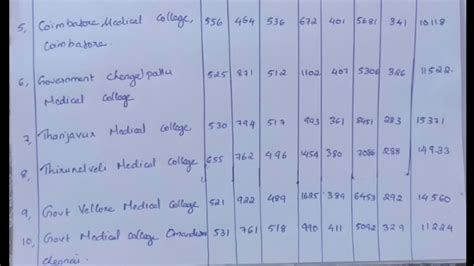 5, Coimbatore Medical College, 556 464 536 672 401 5681 341 10118
Coimbatore.
6, Government Chengalpattu 525 871 512 1102 407 5306 386 11522
Medical College
7, Thanjavur Medical College 530 794 517 993 361 8451 283 15371
8, Thirunelveli Medical College 655 762 496 1454 380 7086 288 14933
9, Govt Vellore Medical College 521 922 489 1685 389 6453 292 14560
10, Govt Medical College 531 761 518 990 411 5092 329 11224
chennai.